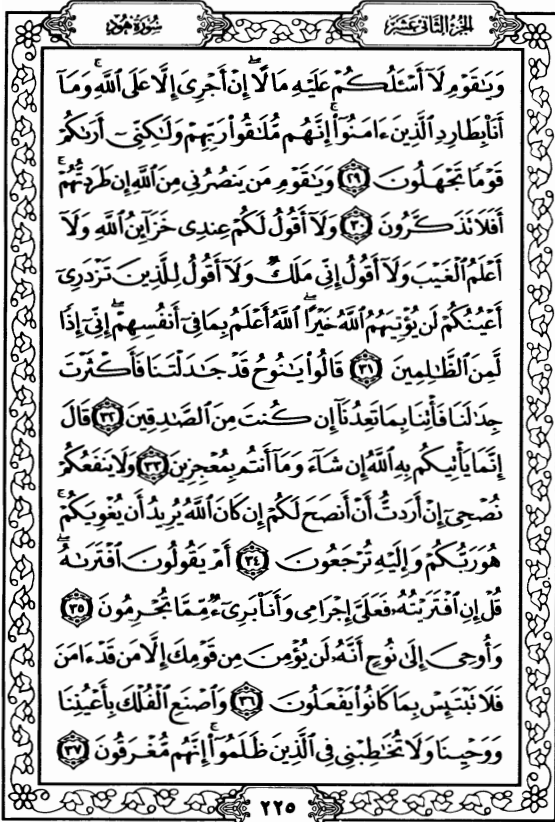 الجزء الثاني عشر
سورة هود
وَيَٰقَوۡمِ لَآ أَسۡـَٔلُكُمۡ عَلَيۡهِ مَالًاۖ إِنۡ أَجۡرِيَ إِلَّا عَلَى ٱللَّهِۚ وَمَآ
أَنَا۠ بِطَارِدِ ٱلَّذِينَ ءَامَنُوٓاْۚ إِنَّهُم مُّلَٰقُواْ رَبِّهِمۡ وَلَٰكِنِّيٓ أَرَىٰكُمۡ
قَوۡمٗا تَجۡهَلُونَ ٢٩ وَيَٰقَوۡمِ مَن يَنصُرُنِي مِنَ ٱللَّهِ إِن طَرَدتُّهُمۡۚ
أَفَلَا تَذَكَّرُونَ ٣٠ وَلَآ أَقُولُ لَكُمۡ عِندِي خَزَآئِنُ ٱللَّهِ وَلَآ
أَعۡلَمُ ٱلۡغَيۡبَ وَلَآ أَقُولُ إِنِّي مَلَكٞ وَلَآ أَقُولُ لِلَّذِينَ تَزۡدَرِيٓ
أَعۡيُنُكُمۡ لَن يُؤۡتِيَهُمُ ٱللَّهُ خَيۡرًاۖ ٱللَّهُ أَعۡلَمُ بِمَا فِيٓ أَنفُسِهِمۡ إِنِّيٓ إِذٗا
لَّمِنَ ٱلظَّٰلِمِينَ ٣١ قَالُواْ يَٰنُوحُ قَدۡ جَٰدَلۡتَنَا فَأَكۡثَرۡتَ
جِدَٰلَنَا فَأۡتِنَا بِمَا تَعِدُنَآ إِن كُنتَ مِنَ ٱلصَّٰدِقِينَ ٣٢ قَالَ
إِنَّمَا يَأۡتِيكُم بِهِ ٱللَّهُ إِن شَآءَ وَمَآ أَنتُم بِمُعۡجِزِينَ ٣٣ وَلَا يَنفَعُكُمۡ
نُصۡحِيٓ إِنۡ أَرَدتُّ أَنۡ أَنصَحَ لَكُمۡ إِن كَانَ ٱللَّهُ يُرِيدُ أَن يُغۡوِيَكُمۡۚ
هُوَ رَبُّكُمۡ وَإِلَيۡهِ تُرۡجَعُونَ ٣٤ أَمۡ يَقُولُونَ ٱفۡتَرَىٰهُۖ
قُلۡ إِنِ ٱفۡتَرَيۡتُهُۥ فَعَلَيَّ إِجۡرَامِي وَأَنَا۠ بَرِيٓءٞ مِّمَّا تُجۡرِمُونَ ٣٥
وَأُوحِيَ إِلَىٰ نُوحٍ أَنَّهُۥ لَن يُؤۡمِنَ مِن قَوۡمِكَ إِلَّا مَن قَدۡ ءَامَنَ
فَلَا تَبۡتَئِسۡ بِمَا كَانُواْ يَفۡعَلُونَ ٣٦ وَٱصۡنَعِ ٱلۡفُلۡكَ بِأَعۡيُنِنَا
وَوَحۡيِنَا وَلَا تُخَٰطِبۡنِي فِي ٱلَّذِينَ ظَلَمُوٓاْۚ إِنَّهُم مُّغۡرَقُونَ ٣٧
٢٢٥